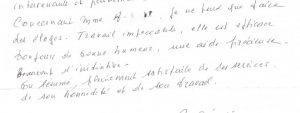 Concernant Mme A... je ne peux que faire
des éloges. Travail impeccable, elle est efficace
toujours de bonne humeur, une aide précieuse.
d'initiative.
En somme, pleinement satisfaite de ses services
de son honnêteté et de son travail.